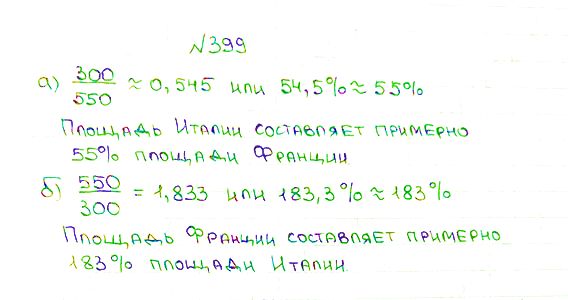 №399
а) 300/550 ≈ 0,545 или 54,5% ≈ 55%
Площадь Италии составляет примерно
55% площади Франции
б) 550/300 = 1,833 или 183,3% ≈ 183%
Площадь Франции составляет примерно
183% площади Италии